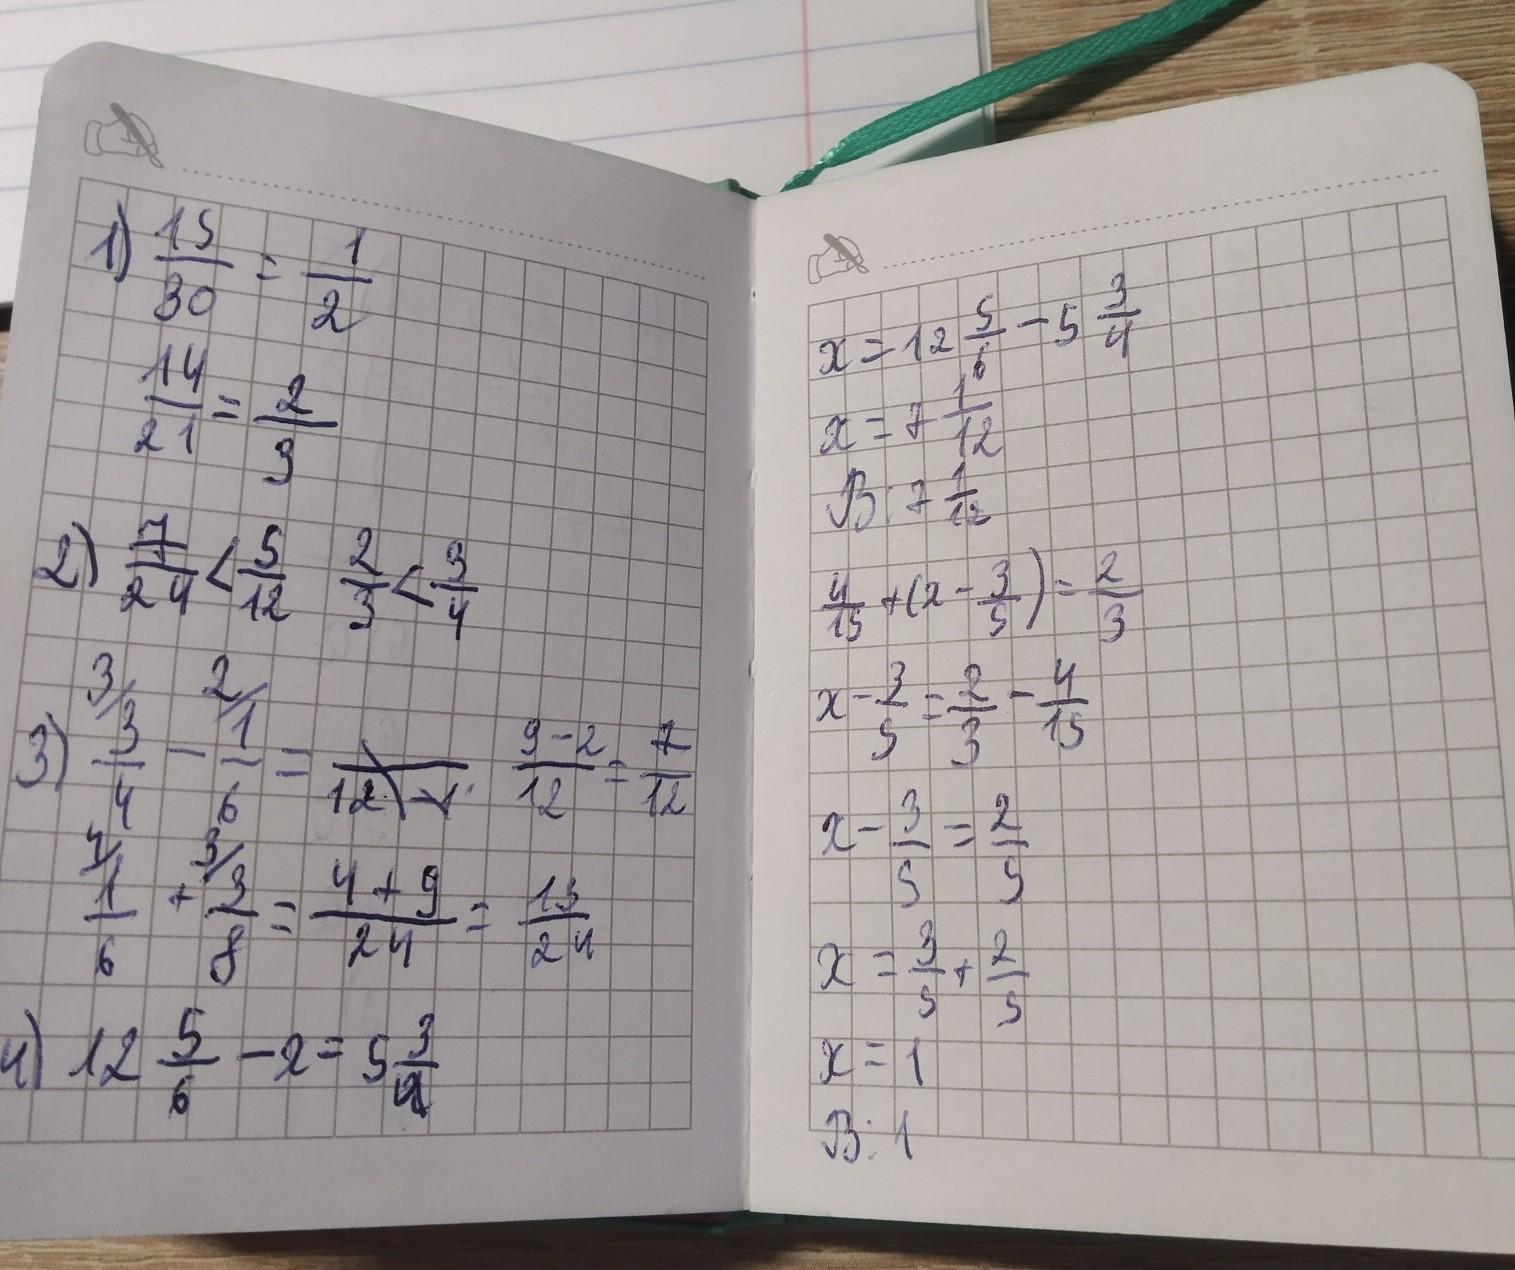 1) 15/30 = 1/2
14/21 = 2/3
2) 7/24 < 5/12 2/3 < 3/4
3) 3/ 3/4 - 2/ 1/6 = 9-2/12 = 7/12
4/ 1/6 + 3/ 3/8 = 4+9/24 = 13/24
4) 12 5/6 - x = 5 3/4
x = 12 5/6 - 5 3/4
x = 7 1/12
В: 7 1/12
4/15 + (x - 3/5) = 2/3
x - 3/5 = 2/3 - 4/15
x - 3/5 = 2/5
x = 3/5 + 2/5
x = 1
В: 1